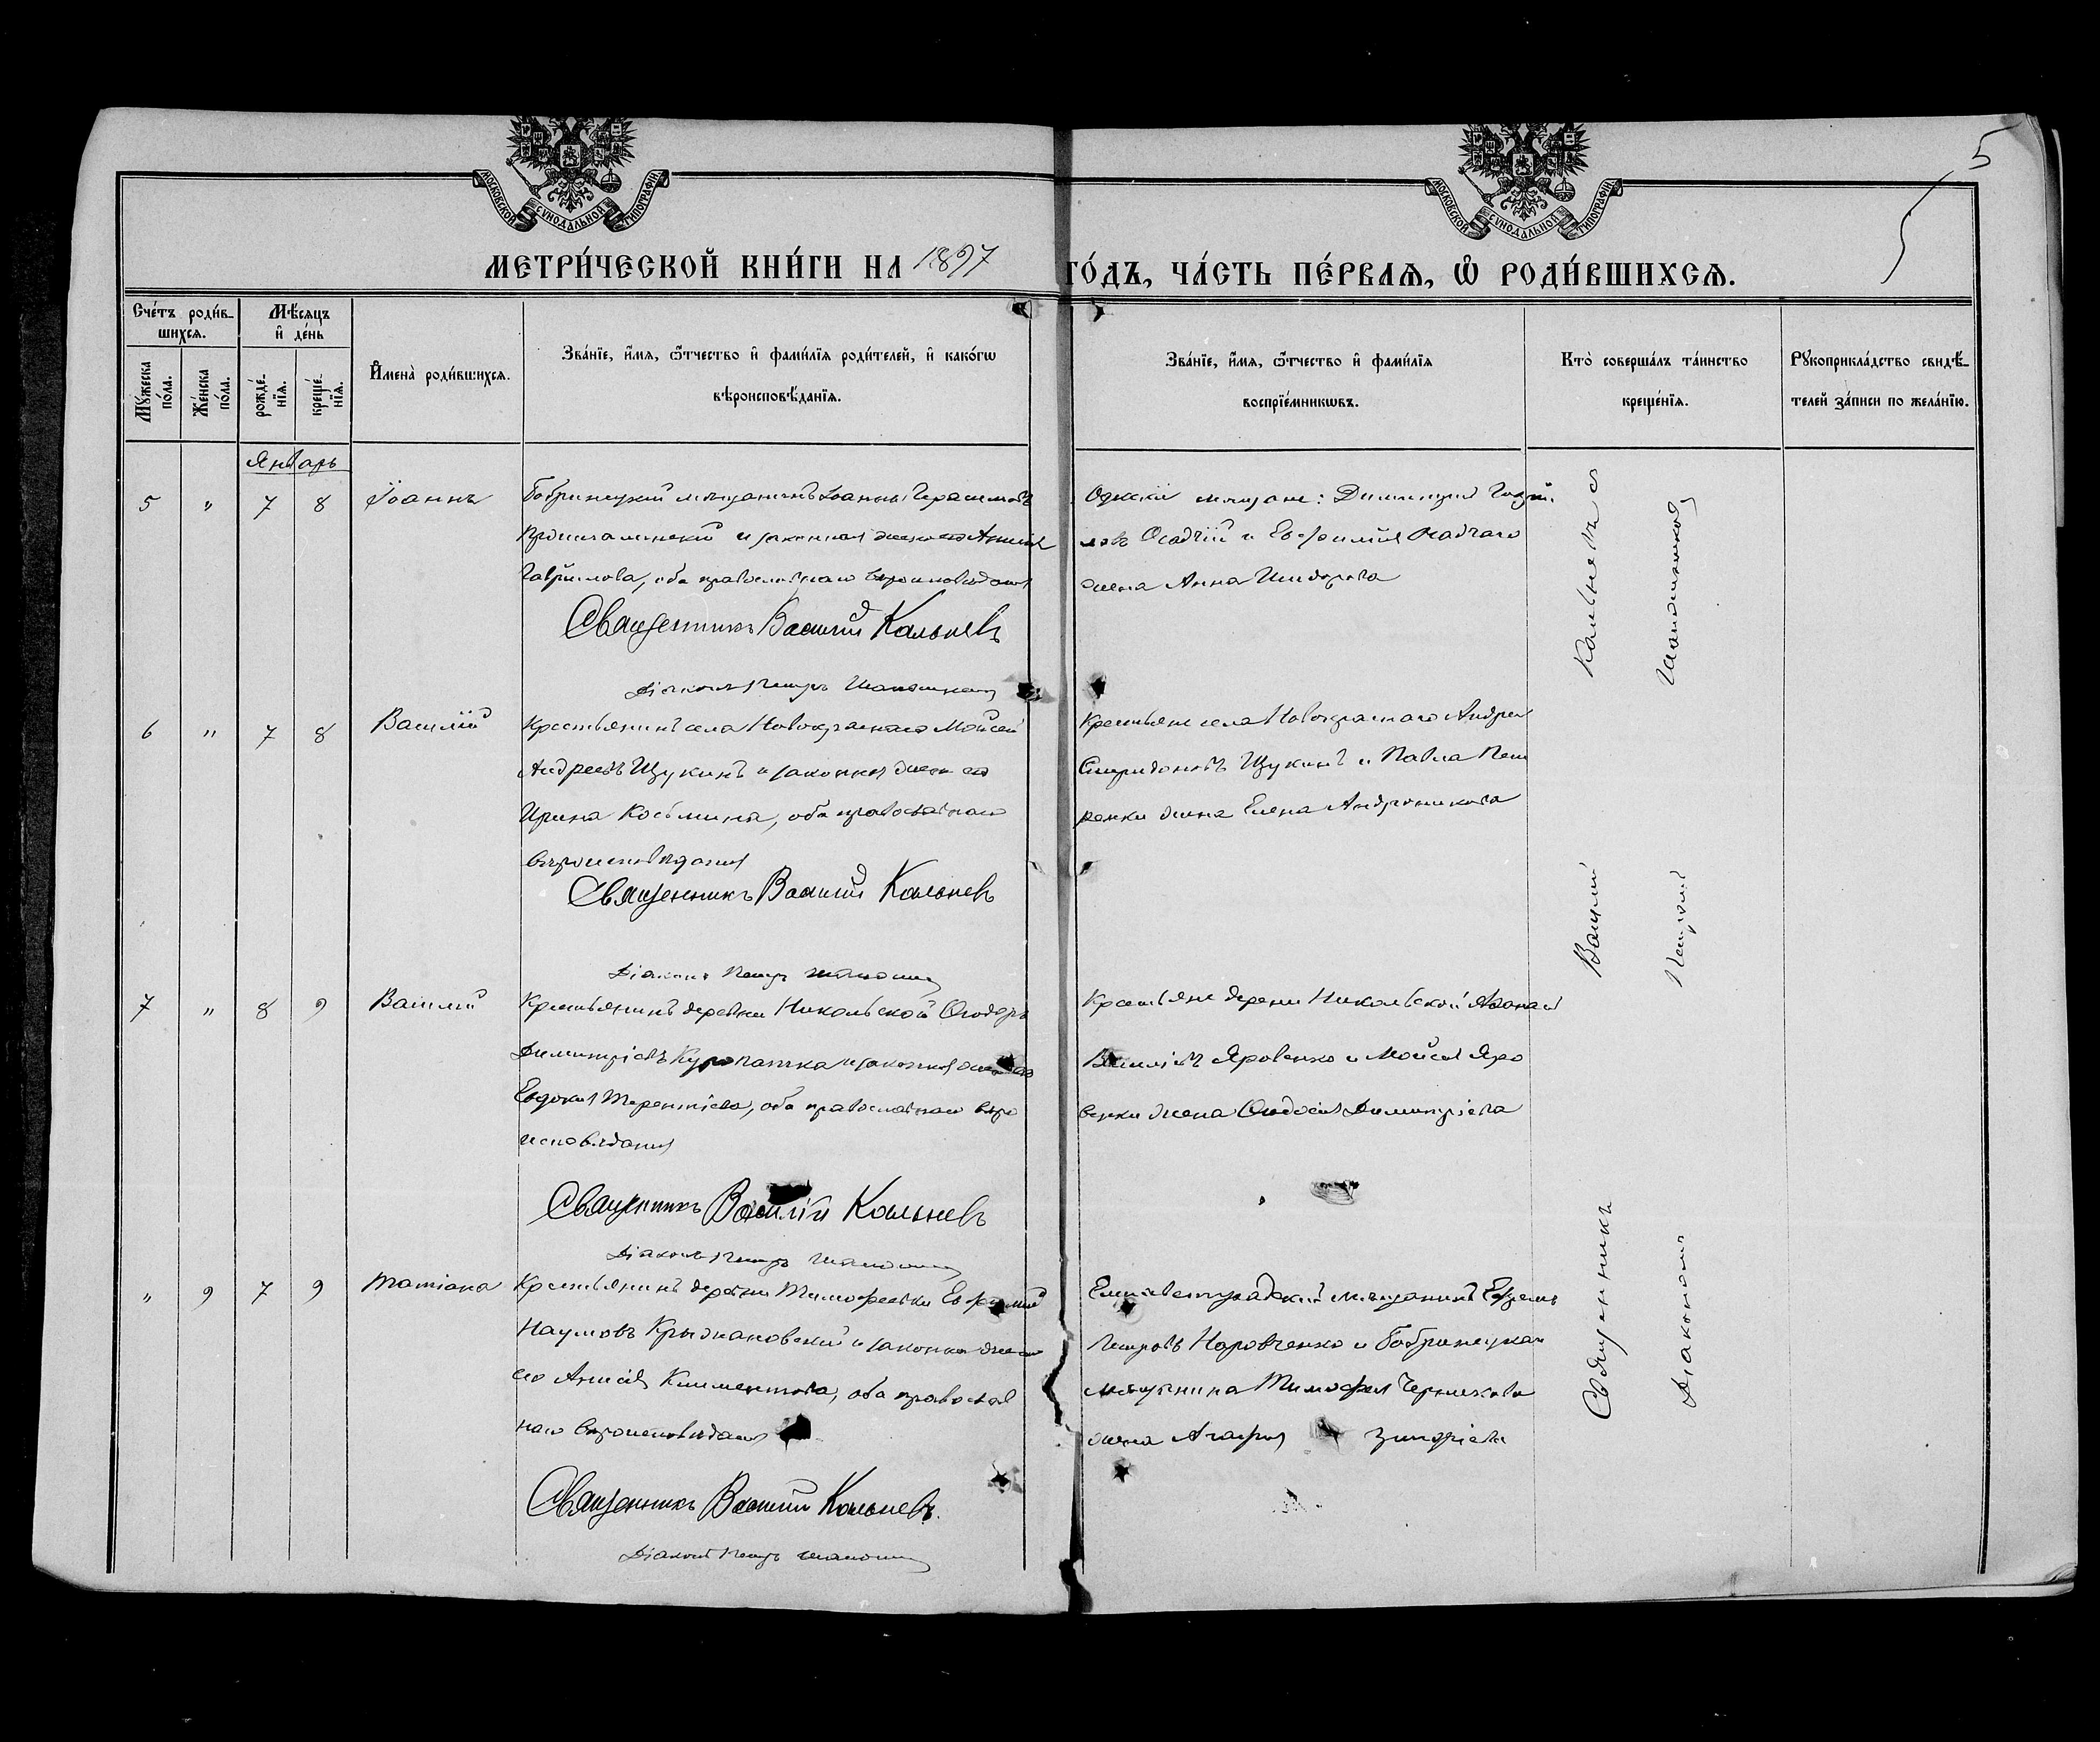 5
МОСКОВСКОЙ СѴНОДАЛЬНОЙ ТИПОГРАФІИ
МОСКОВСКОЙ СѴНОДАЛЬНОЙ ТИПОГРАФІИ
МЕТРИ́ЧЕСКОЙ КНИ́ГИ НА 1897 ГО́ДЪ, ЧА́СТЬ ПЕ́РВАѦ, Ѽ РОДИ́ВШИХСѦ.
5
Сче́тъ роди́в-
шихсѧ.
Мѣ́сѧцъ
и҆ де́нь
Мꙋ́жеска
по́ла.
Же́нска
по́ла.
рожде́-
нїѧ.
креще́-
нїѧ.
И҆мена̀ роди́вшихсѧ.
Зва́нїе, и҆́мѧ, ѻ҆́тчество и҆ фами́лїѧ роди́телей, и҆ како́гѡ
вѣроисповѣ́данїѧ.
Зва́нїе, и҆́мѧ, ѻ҆́тчество и҆ фами́лїѧ
воспрїе́мникѡвъ.
Кто̀ соверша́лъ та́инство
креще́нїѧ.
Рꙋкоприкла́дство свидѣ́-
телей за́писи по жела́нїю.
Январь
5 " 7 8 Іоаннъ
Бобринецкій мѣщанинъ Іоаннъ Герасимовъ
и законная жена его Анисія
Гаврилова, оба православнаго вѣроисповѣданія
Священникъ Василій Кальневъ
Діаконъ Петръ
мѣщане: Димитрій
Осадчій и Осадчаго
жена Анна
6 " 7 8 Василій
Крестьянинъ села Новокраснаго Мойсей
Андреевъ Щукинъ и законная жена его
Ирина Косьмина, оба православнаго
вѣроисповѣданія
Священникъ Василій Кальневъ
Діаконъ Петръ
Крестьяне села Новокраснаго Андрей
Спиридоновъ Щукинъ и Павла Пет
ренки жена Елена Андроникова
7 " 8 9 Василій
Крестьянинъ деревни Никольской Ѳеодоръ
Димитріевъ Куропатка и законная жена его
Евдокія Терентіева, оба православнаго вѣро
исповѣданія
Священникъ Василій Кальневъ
Діаконъ Петръ
Крестьяне деревни Никольской Аѳанасій
Василіевъ Яровенко и Мойсея Яро
венки жена Ѳеодосія Димитріева
" 9 7 9 Татіана
Крестьянинъ деревни Тимофеевки Евфимій
Наумовъ Крыжановскій и законная жена
его Анисія Климентова, оба православ
наго вѣроисповѣданія
Священникъ Василій Кальневъ.
Діаконъ Петръ
Елисаветградскій мѣщанинъ Ефремъ
Петровъ Наровченко и Бобринецкаго
мѣщанина Тимофея
жена Агафія
Священникъ Василій Кальневъ съ
Діакономъ Петромъ